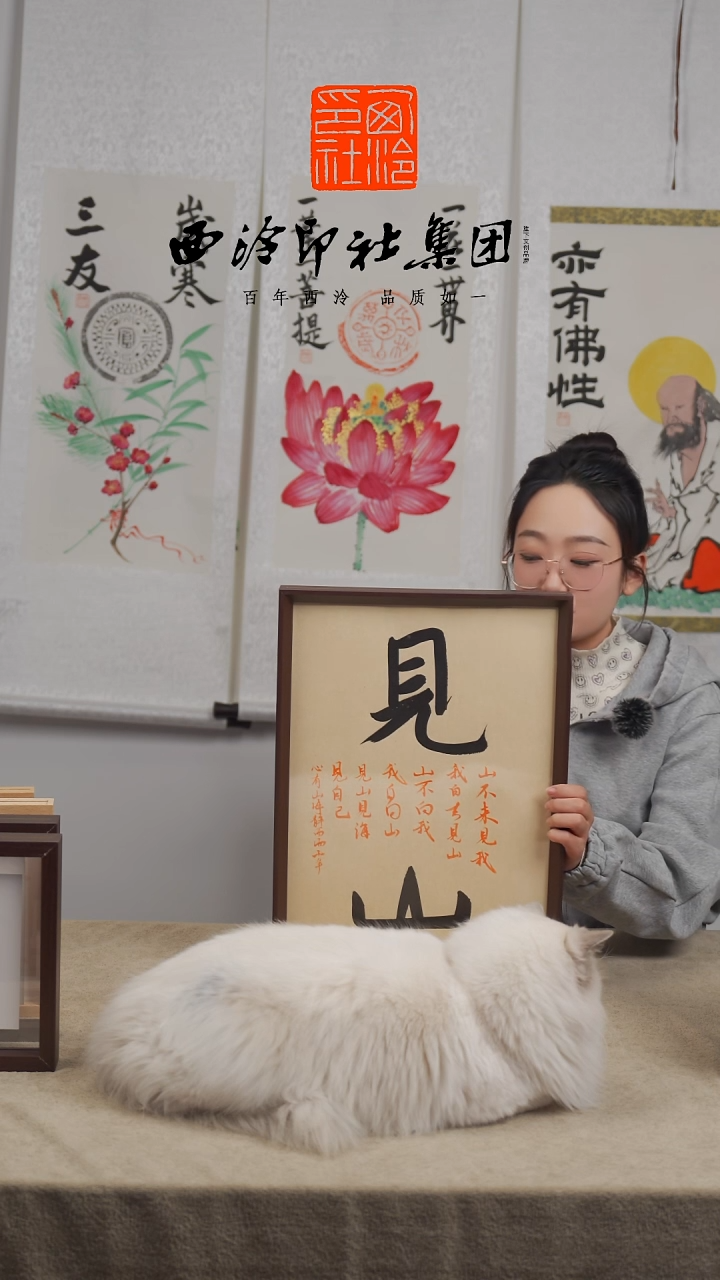 西泠
印社
西泠印社集团
百年西泠 品质如一
歲寒
三友
世界
菩提
亦有佛性
見
山不来見我
我自去見山
山不向我
我自向山
見山見海
見自己
心有山海静而
山